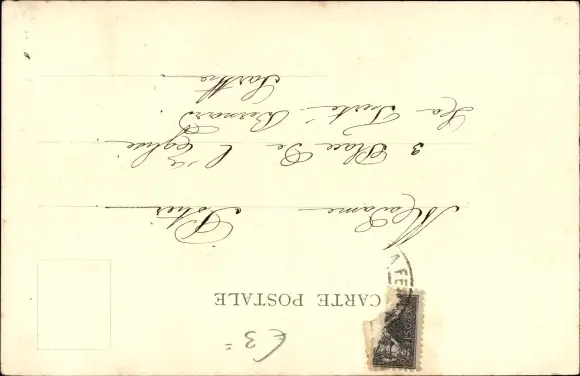 CARTE POSTALE
Madame Potier
3 Place De l'Eglise
La Ferté-Bernard
Sarthe
€ 3=
LA FE
POST